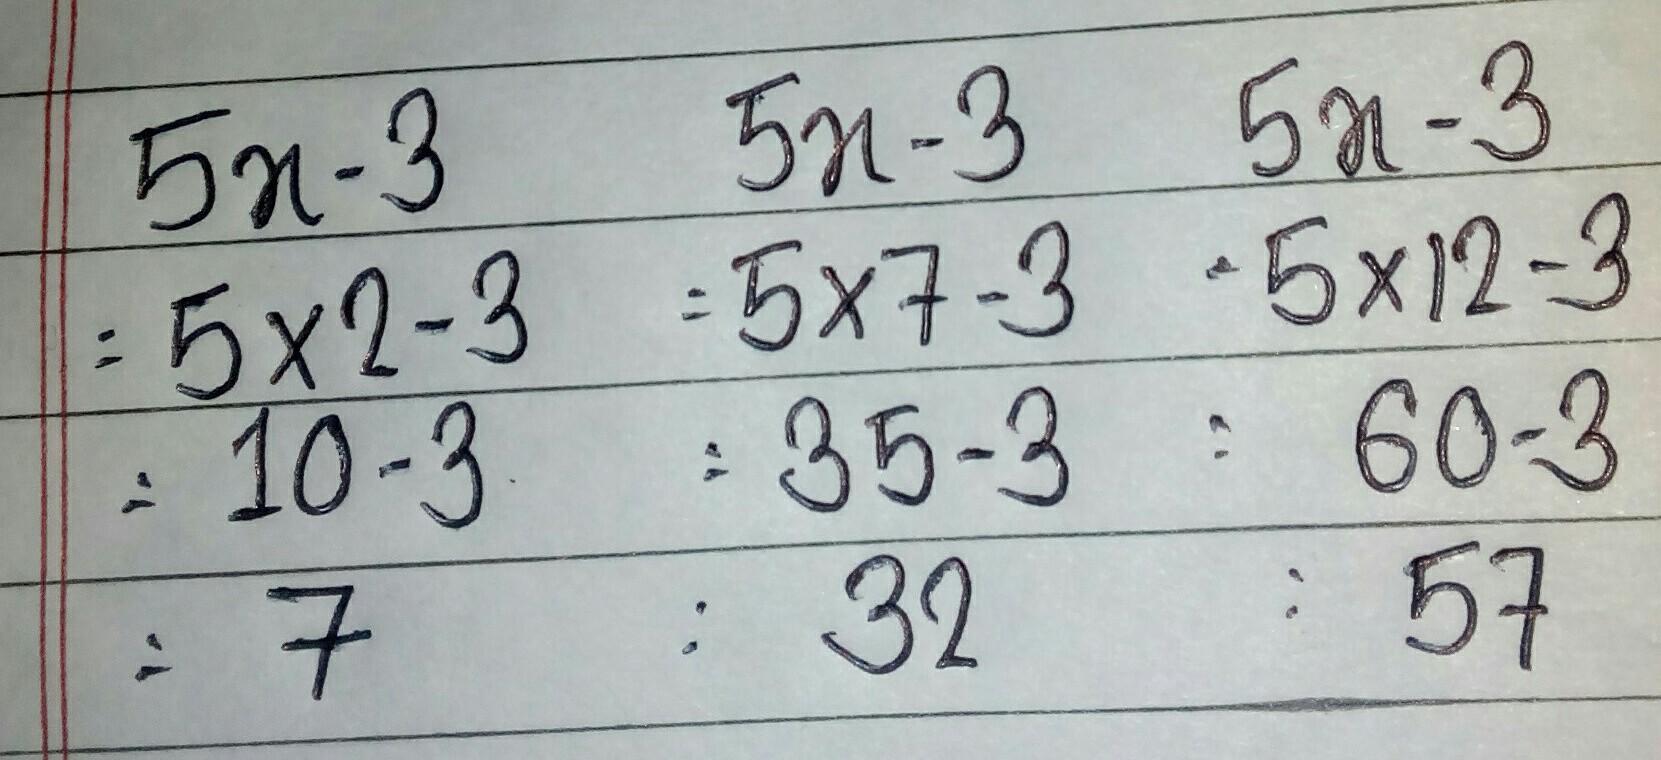 5x-3 5x-3 5x-3
= 5×2-3 = 5×7-3 = 5×12-3
= 10-3 = 35-3 = 60-3
= 7 = 32 = 57